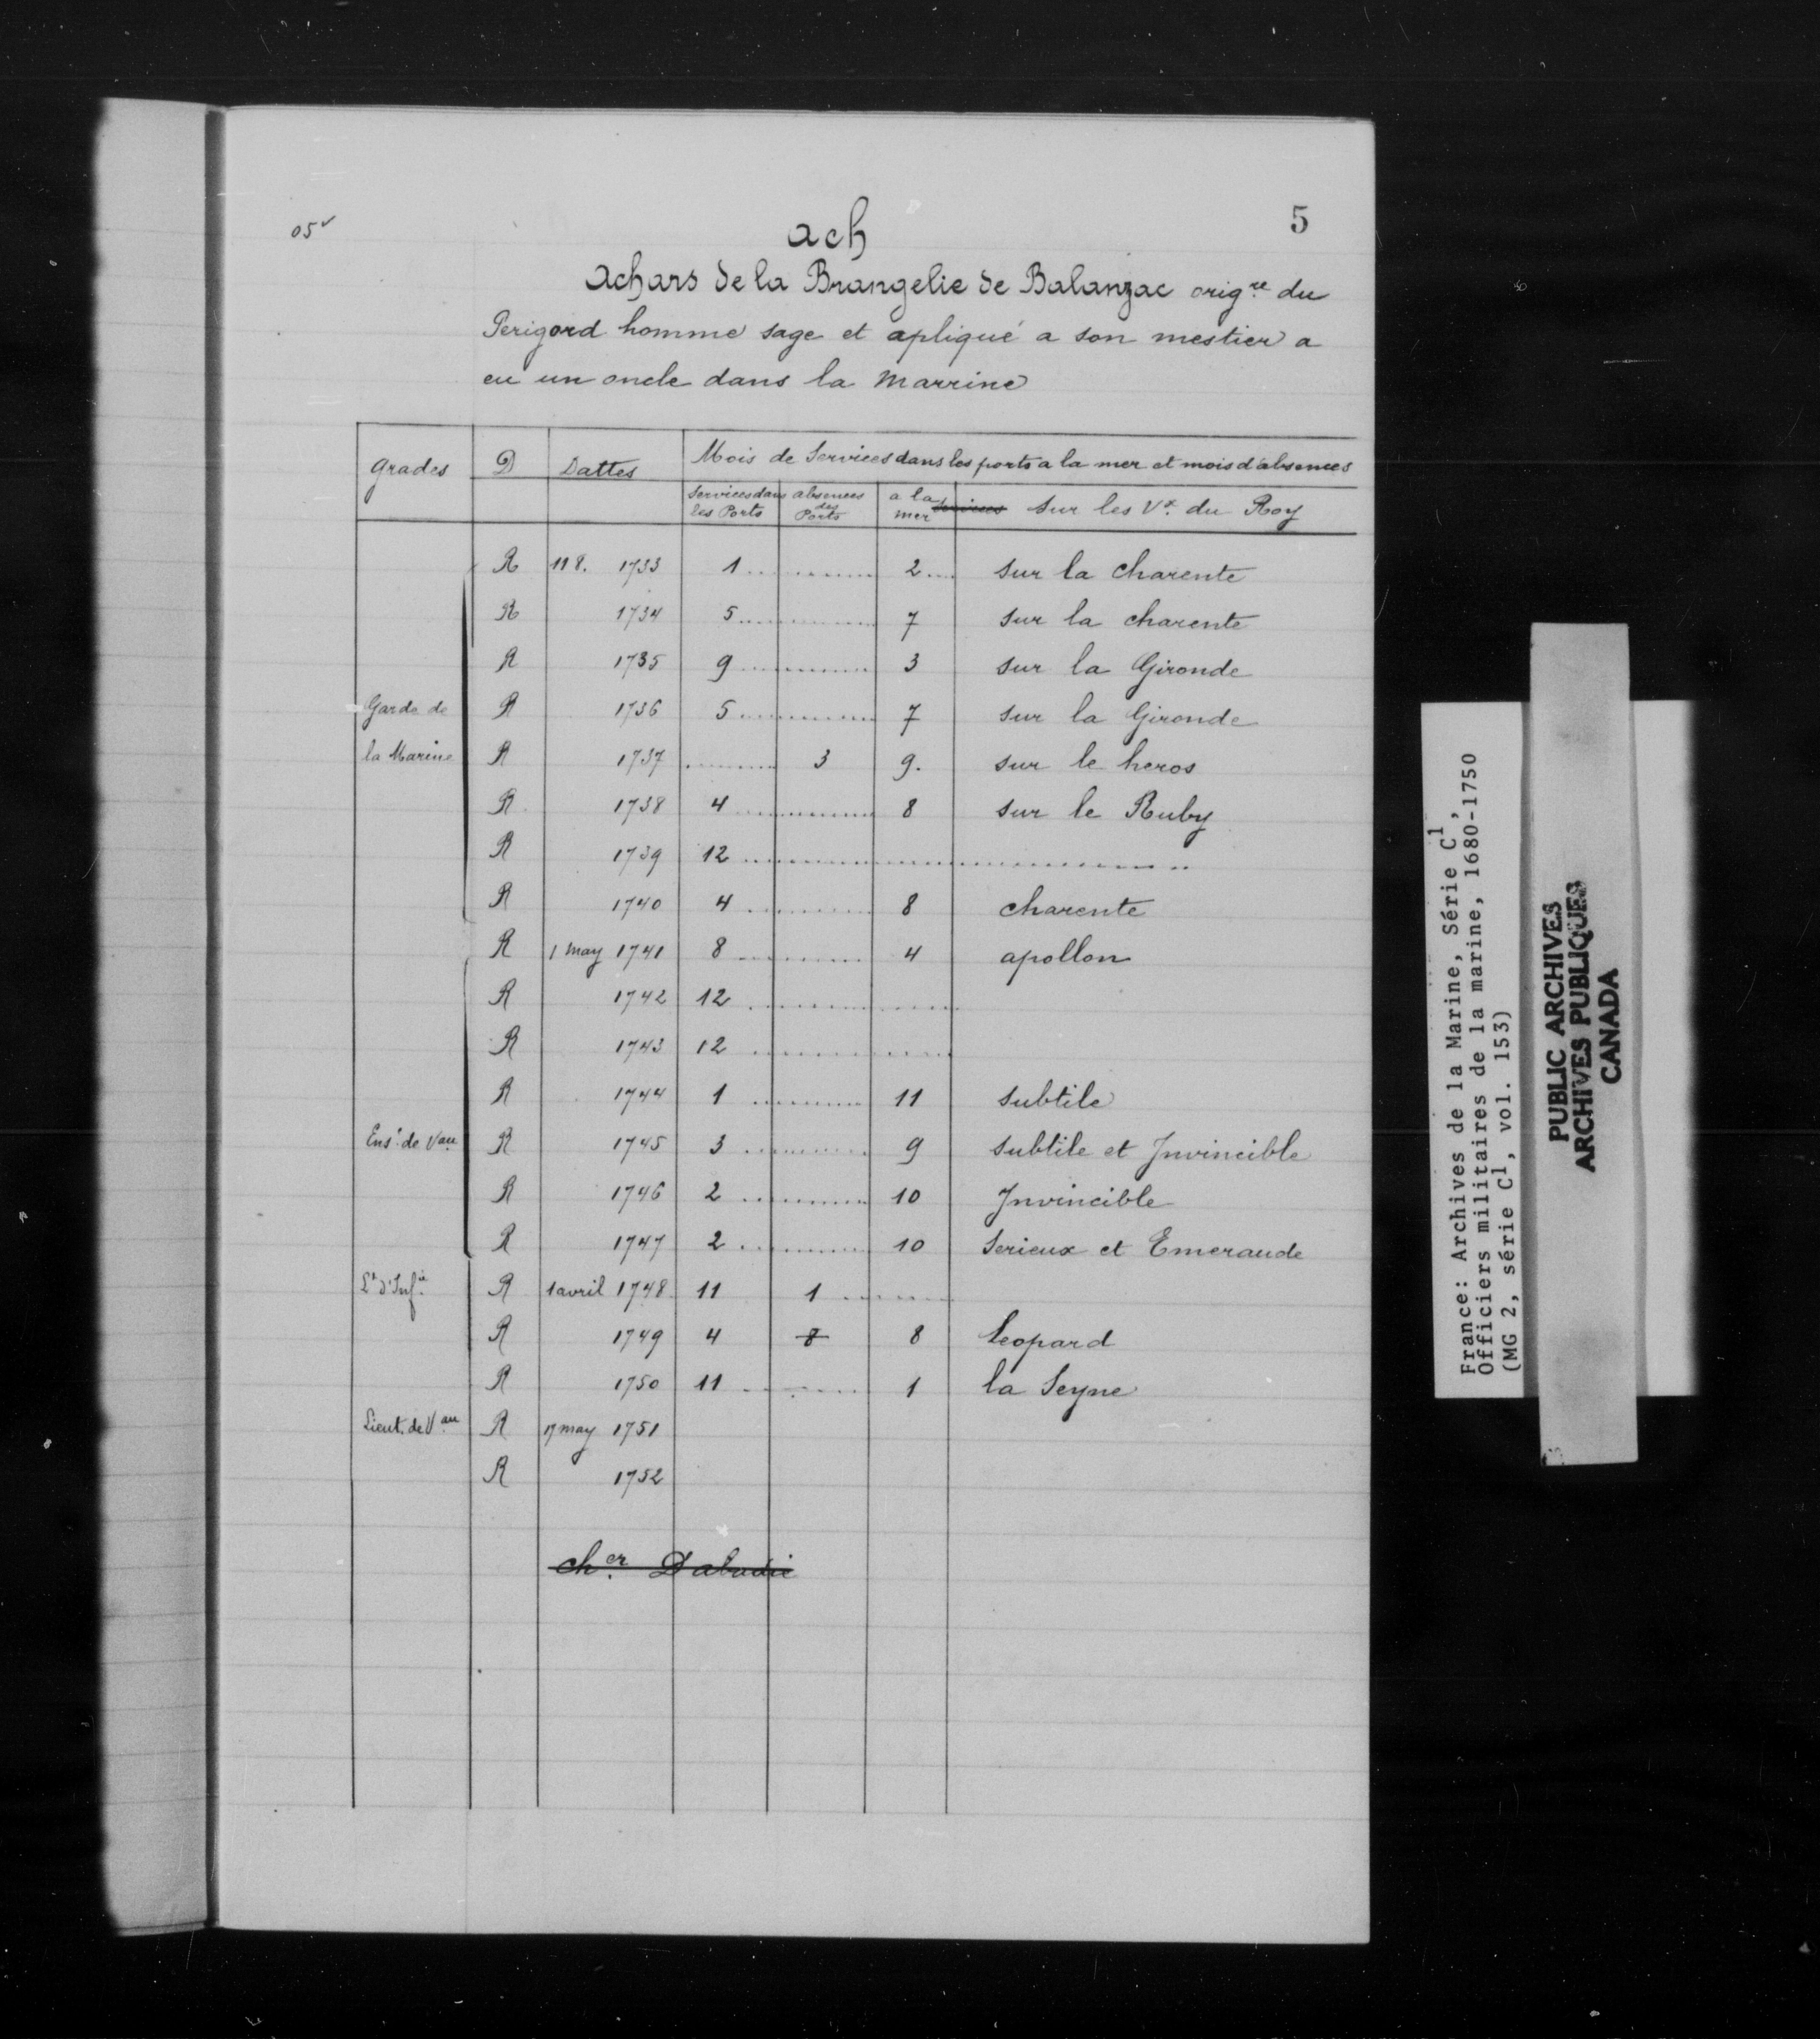 05v
5
ach
Achars de la Brangelie de Balanzac orig.re du
Perigord homme sage et apliqué a son mestier a
eu un oncle dans la marrine
Grades D Dattes Mois de Services dans les ports a la mer et mois d'absences
Services dans les Ports absences des Ports a la mer services sur les Vx. du Roy
R 118. 1733 1 2 sur la charente
R 1734 5 7 sur la charente
R 1735 9 3 sur la Gironde
Garde de R 1736 5 7 sur la Gironde
la Marine R 1737 3 9. sur le heros
R 1738 4 8 sur le Ruby
R 1739 12
R 1740 4 8 charente
R 1 may 1741 8 4 apollon
R 1742 12
R 1743 12
R 1744 1 11 subtile
Ens.e de Vau R 1745 3 9 subtile et Invincible
R 1746 2 10 Invincible
R 1747 2 10 Serieux et Emeraude
Lt d'Inf.ie R 1 avril 1748 11 1
R 1749 4 8 8 Leopard
R 1750 11 1 la Seyne
Lieut. de Vau R 17 may 1751
R 1752
ch.er Dabadie
France: Archives de la Marine, Série C1,
Officiers militaires de la marine, 1680-1750
(MG 2, série C1, vol. 153)
PUBLIC ARCHIVES
ARCHIVES PUBLIQUES
CANADA